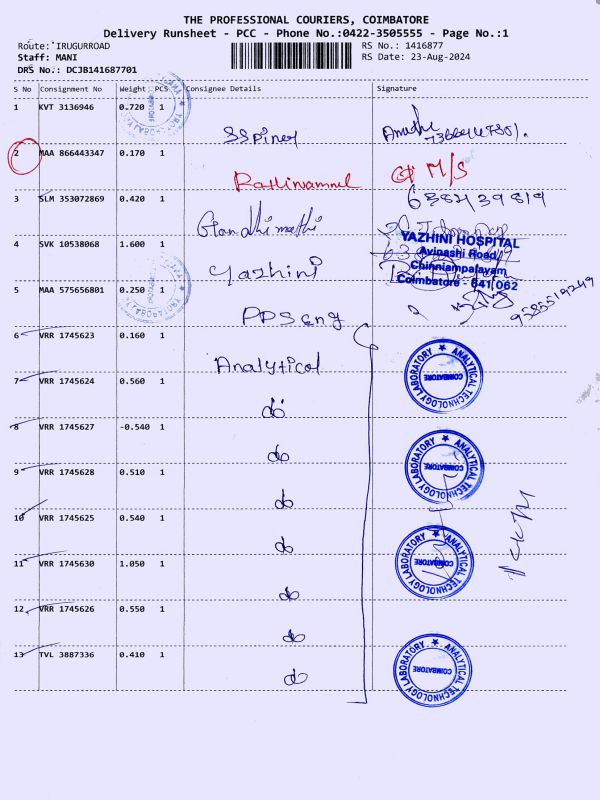 THE PROFESSIONAL COURIERS, COIMBATORE
Delivery Runsheet - PCC - Phone No.:0422-3505555 - Page No.:1
Route: IRUGURROAD
RS No.: 1416877
Staff: MANI
RS Date: 23-Aug-2024
DRS No.: DCJB141687701
S No Consignment No Weight PCS Consignee Details Signature
1 KVT 3136946 0.720 1
SSPiney
2 MAA 866443347 0.170 1
M/S
3 SLM 353072869 0.420 1
6382139819
Gandhimathi
4 SVK 10538068 1.600 1
YAZHINI HOSPITAL
Avinashi Road
Chinniampalayam
Coimbatore - 641 062
Yazhini
5 MAA 575656801 0.250 1
9585519249
PPS eng
6 VRR 1745623 0.160 1
Analytical
ANALYTICAL TECHNOLOGY LABORATORY
COIMBATORE
7 VRR 1745624 0.560 1
do
8 VRR 1745627 -0.540 1
do
ANALYTICAL TECHNOLOGY LABORATORY
COIMBATORE
9 VRR 1745628 0.510 1
do
10 VRR 1745625 0.540 1
do
ANALYTICAL TECHNOLOGY LABORATORY
COIMBATORE
11 VRR 1745630 1.050 1
do
12 VRR 1745626 0.550 1
do
13 TVL 3887336 0.410 1
do
ANALYTICAL TECHNOLOGY LABORATORY
COIMBATORE